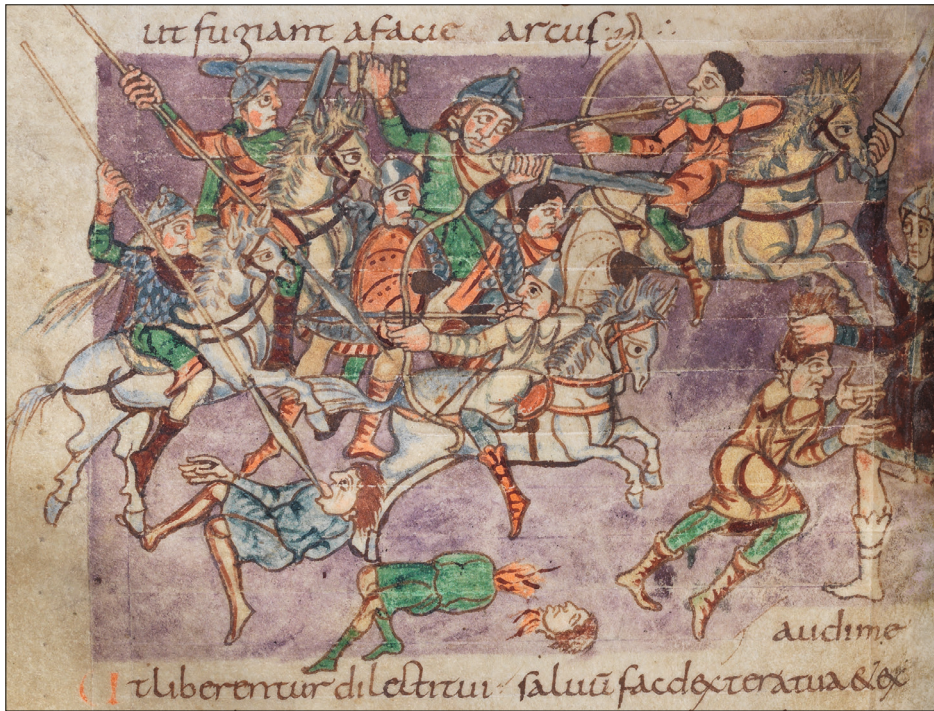 ut fugiant afacie arcus
audime
Ut liberentur dilectitui saluū facdexteratua & ex